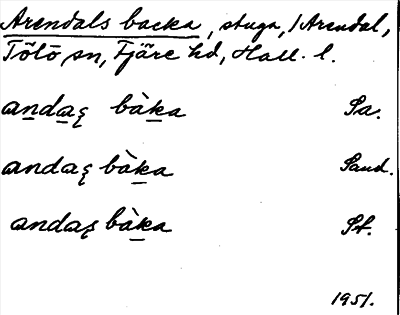 Arendals backa, stuga, /Arendal,
Tölö sn, Fjäre hd, Hall. l.
andaş bàka Sa.
andaş bàka Sand.
andaş bàka St.
1951.